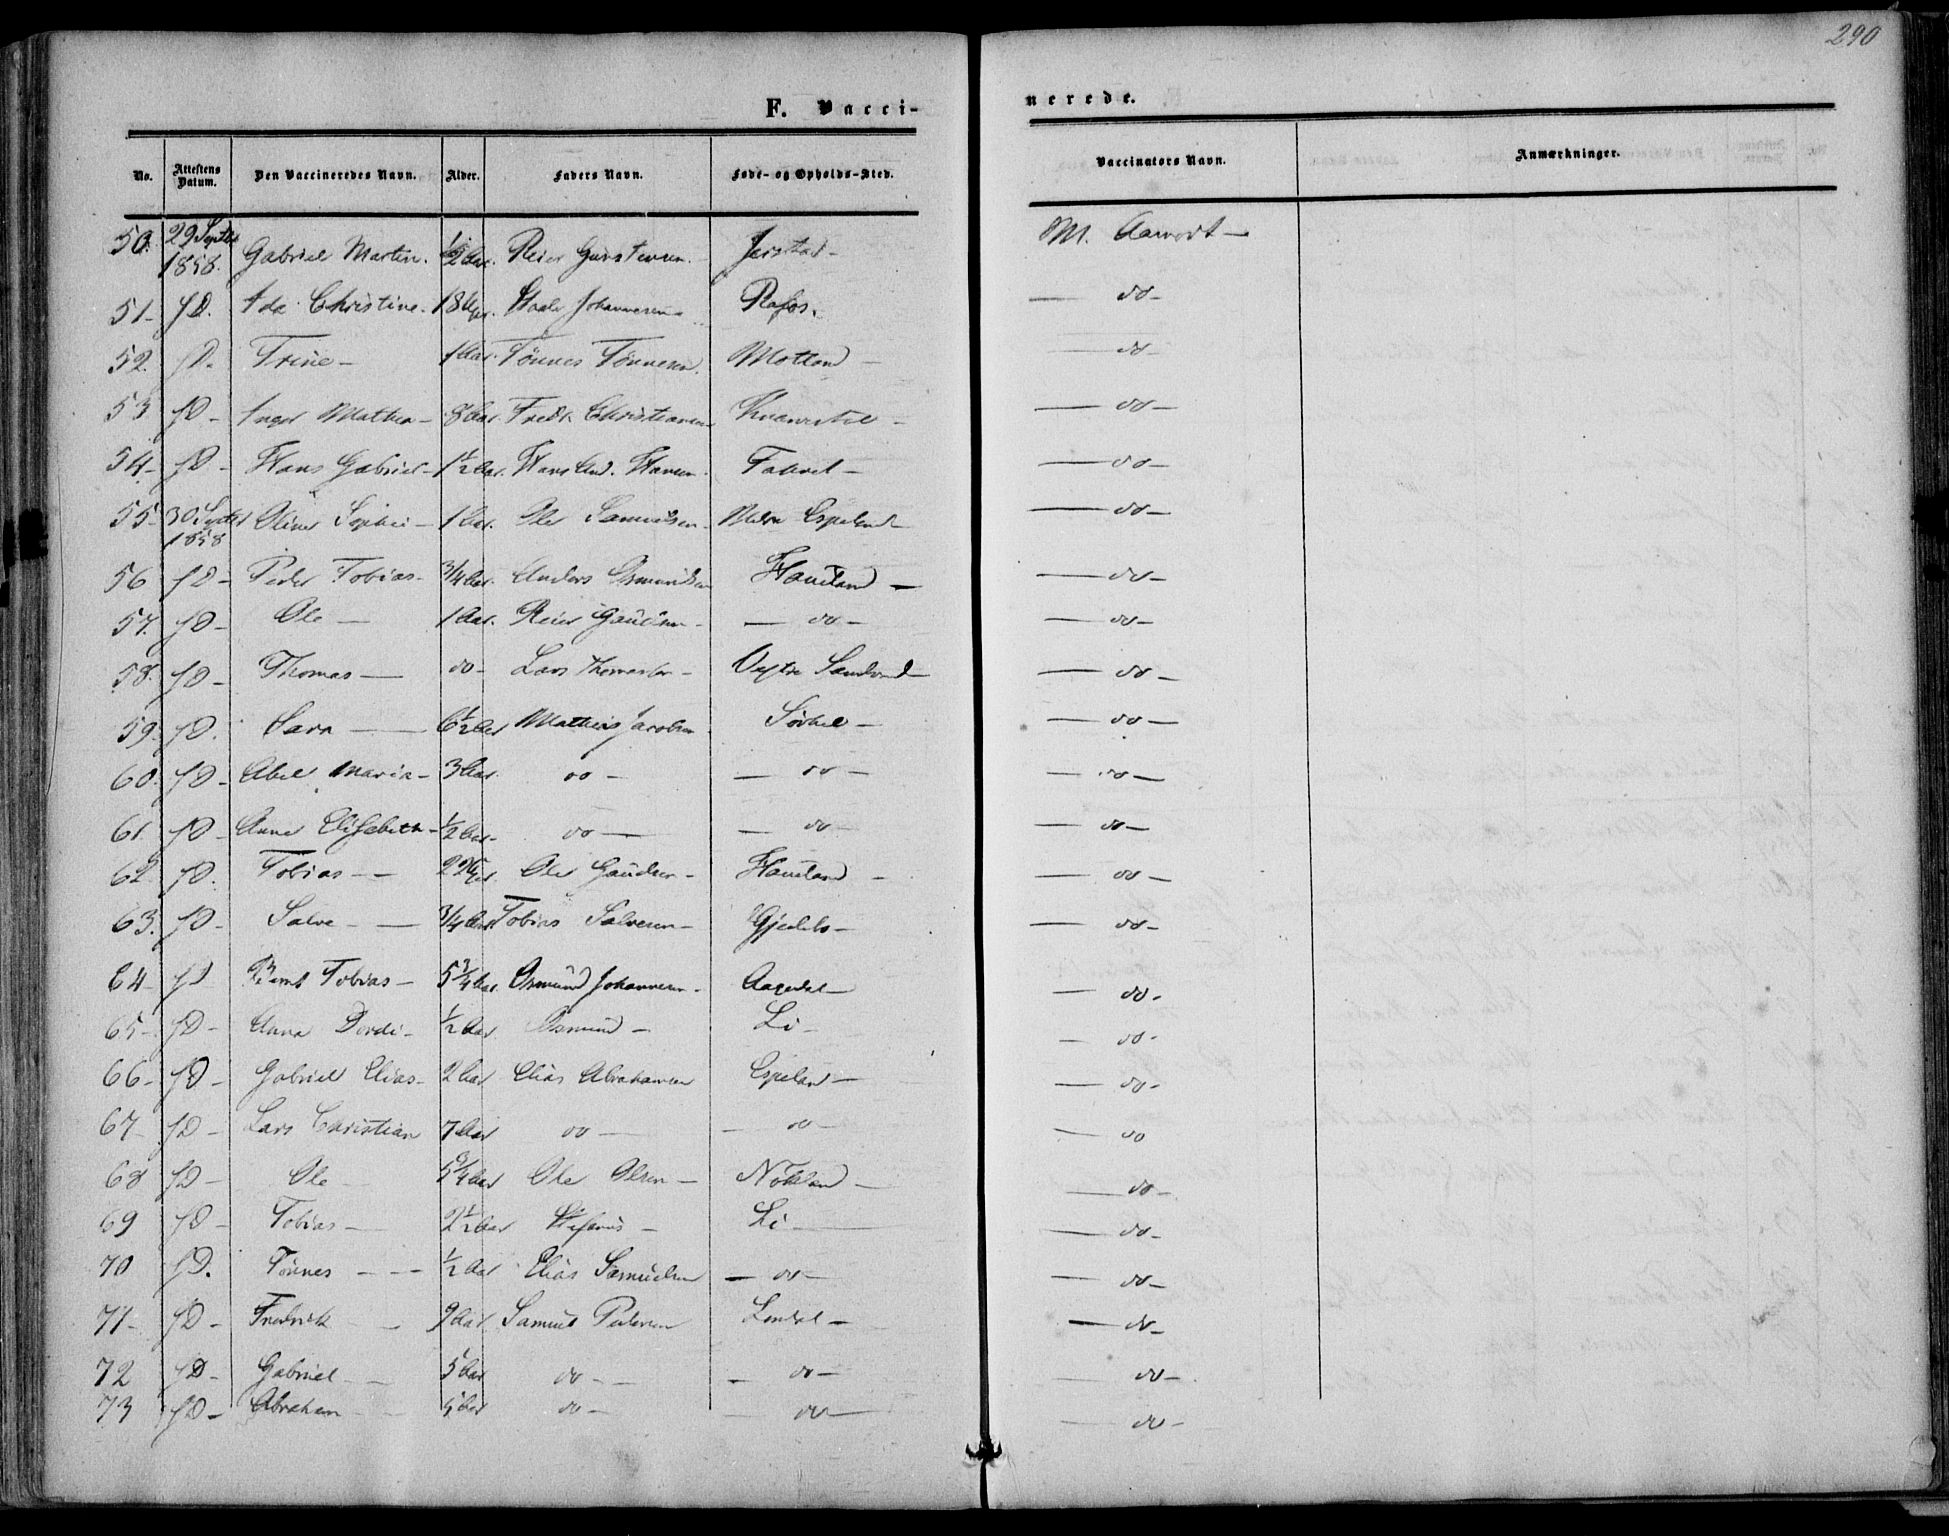 290
F. Vacci-
nerede.
No. Attestens Datum. Den Vaccineredes Navn. Alder. Faders Navn. Føde- og Opholds-Sted. Vaccinators Navn. Anmærkninger.
50. 29 Septbr 1858. Gabriel Martin. ½ Aar. Reier Jerstad - M.
51 - f D. Ada Christine. Johannesen Rafos. — do -
52. f D. Trine - 1 Aar. Tønnes Tønnesen. Motland — do -
53 f D - Inger Mathea - 8 Aar. Fredk Christiansen — do -
54 - f D - Hans Gabriel - 1½ Aar. Hans And. Hansen. — do -
55 - 30 Septbr 1858 Oline Sophie - 1 Aar. Ole Samuelsen Nedre Espeland — do -
56 f D - Peder Tobias - ¾ Aar. Anders Osmundsen Haueland — do -
57. f D - Ole — 1 Aar. Reier Gaudsen - — do - — do -
58. f D - Thomas — do - Lars Thomassen - Øvfre Sandvand — do -
59. f D. Sara — 6½ Aar Mathias Jacobsen — do -
60. f D - Abel Maria - 3 Aar. do - — do - — do -
61. f D - Anne Elisabeth - ½ Aar - do — — do - — do -
62. f D. Tobias — Ole Gaudsen - Haueland - — do -
63. f D - Salve — ¾ Aar Tobias Salvesen - — do -
64 - f D Bernt Tobias - Osmund Johannesen - Aagedal — do -
65 - f D - Anna Dordi - ½ Aar Osmund - Li - — do -
66 - f D - Gabriel Elias - 2 Aar Elias Abrahamsen Espeland — — do -
67 - f D - Lars Christian 7 Aar do — — do - — do
68 f D - Ole - Ole Olsen - Nøkland — — do -
69 f D - Tobias - 2½ Aar - Li — — do -
70 f D. Tønnes - - - ½ Aar Elias Samuelsen — do - — do -
71 - f D - Fredrik - 9 Aar Samuel Pedersen Lindal - — do -
72 f D - Gabriel - 5 Aar do - - — do - — do -
73 f D - Abraham - do - — do — — do -